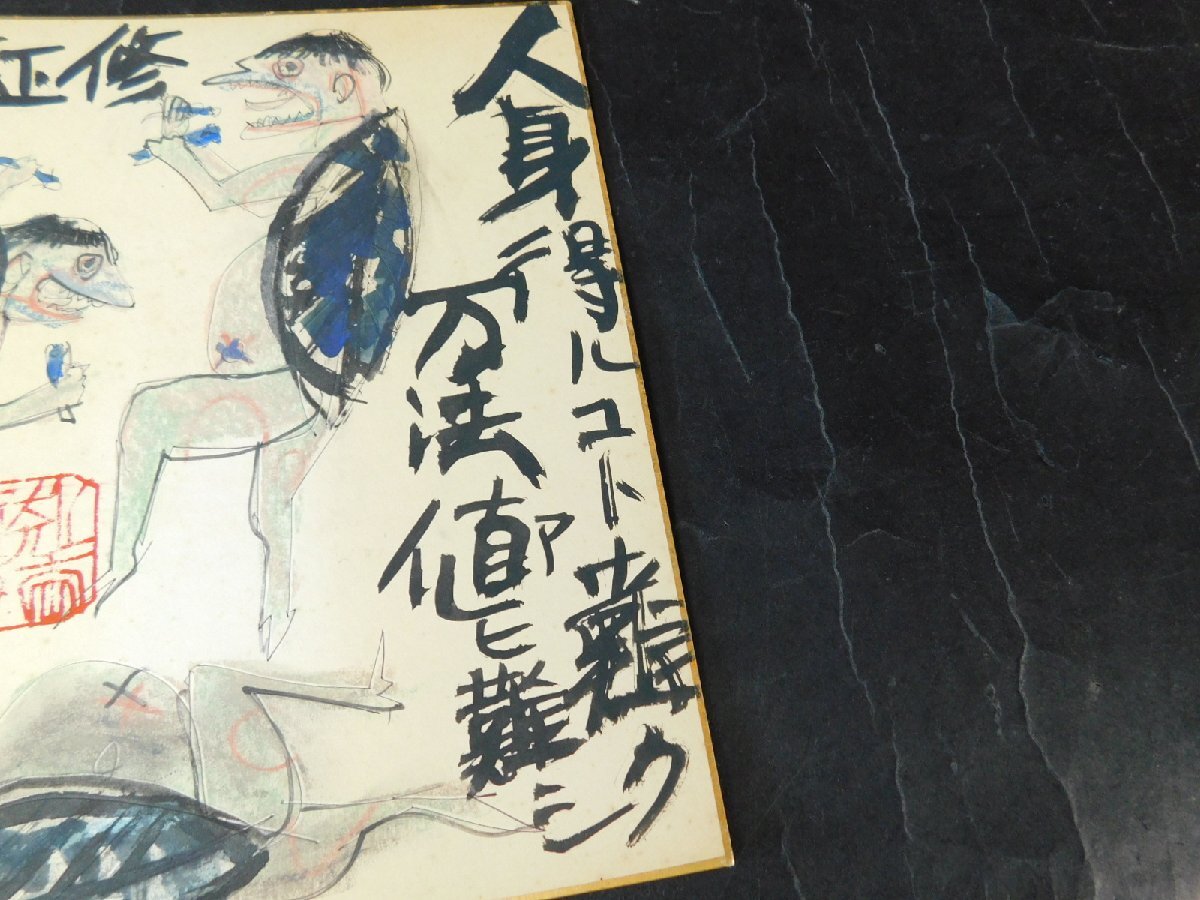 人身得ルコト難ク
万法値ヒ難シ
修正